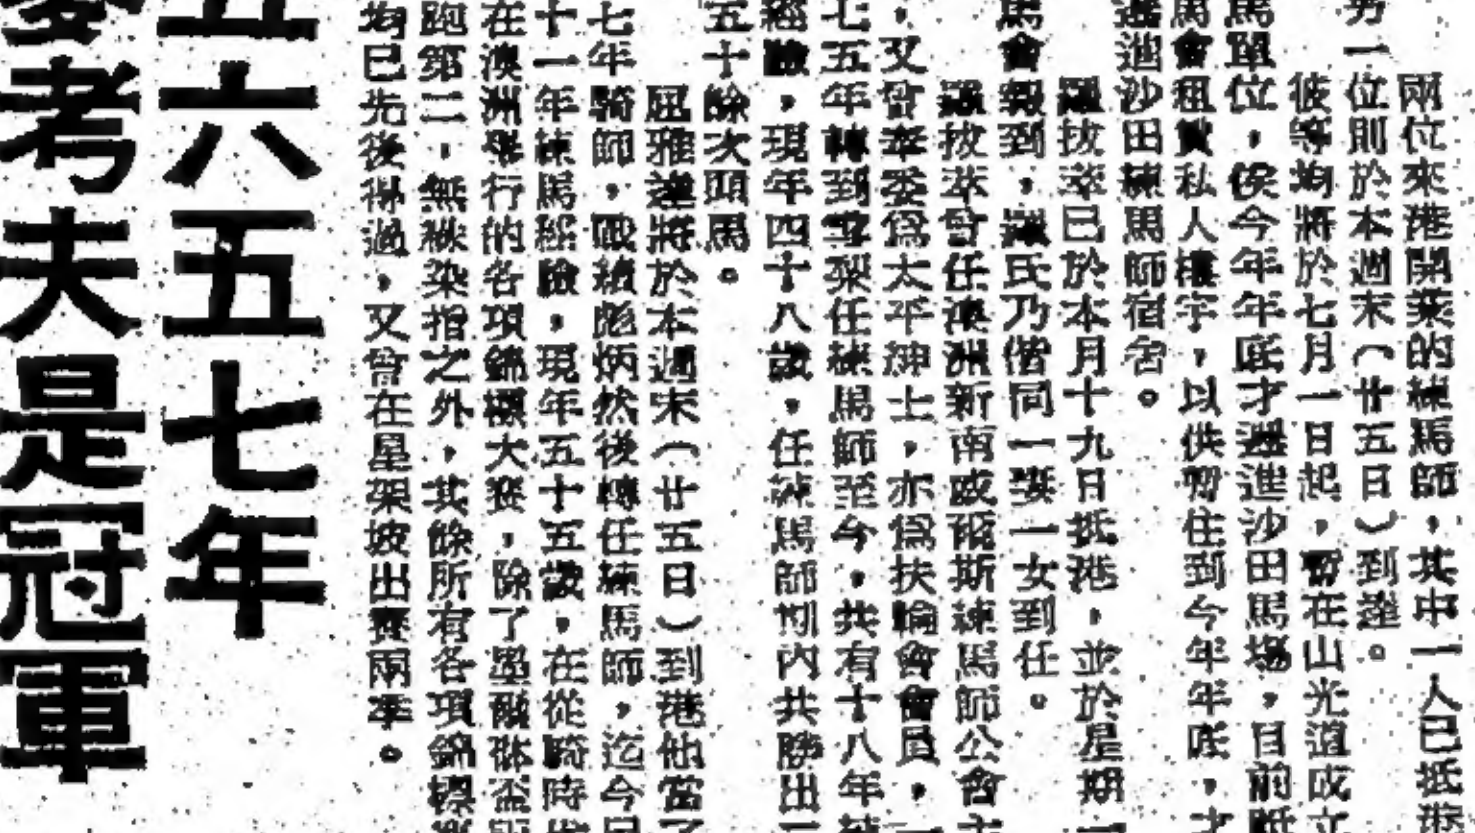 兩位來港開業的練馬師，其中一人已抵港
另一位則於本週末（廿五日）到達。
彼等均將於七月一日起，暫在山光道成立
馬單位，俟今年年底才遷進沙田馬場，目前
馬會租賃私人樓宇，以供暫住到今年年底，才
遷進沙田練馬師宿舍。
羅拔萃已於本月十九日抵港，並於星期一
馬會報到，羅氏乃偕同一妻一女到任。
羅拔萃曾任澳洲新南威爾斯練馬師公會主
，又曾奉委為太平紳士，亦為扶輪會會員，一
七五年轉到雪梨任練馬師至今，共有十八年
經驗，現年四十八歲，任練馬師期內共勝出一
五十餘次頭馬。
屈雅達將於本週末（廿五日）到港他當了
七年騎師，戰績彪炳然後轉任練馬師，迄今已
十一年練馬經驗，現年五十五歲，在從騎時代
在澳洲舉行的各項錦標大賽，除了墨爾砵盃
跑第二，無緣染指之外，其餘所有各項錦標
均已先後得過，又曾在星架坡出賽兩季。
五六五七年
參考夫是冠軍